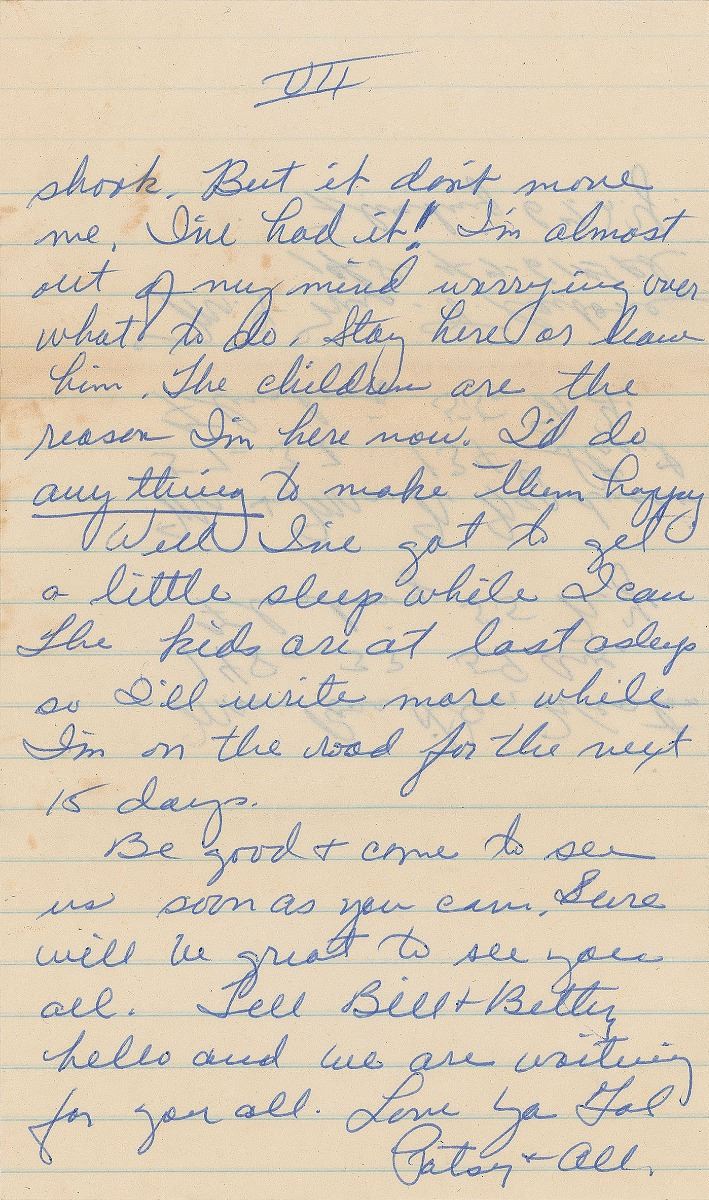 VII
shook. But it don't move
me, I've had it!! I'm almost
out of my mind worrying over
what to do. Stay here or leave
him. The children are the
reason I'm here now. I'd do
anything to make them happy
Well I've got to get
a little sleep while I can
The kids are at last asleep
so I'll write more while
I'm on the road for the next
15 days.
Be good & come to see
us soon as you can. Sure
will be great to see you
all. Tell Bill & Betty
hello and we are waiting
for you all. Love Ya Gal
Patsy & All.